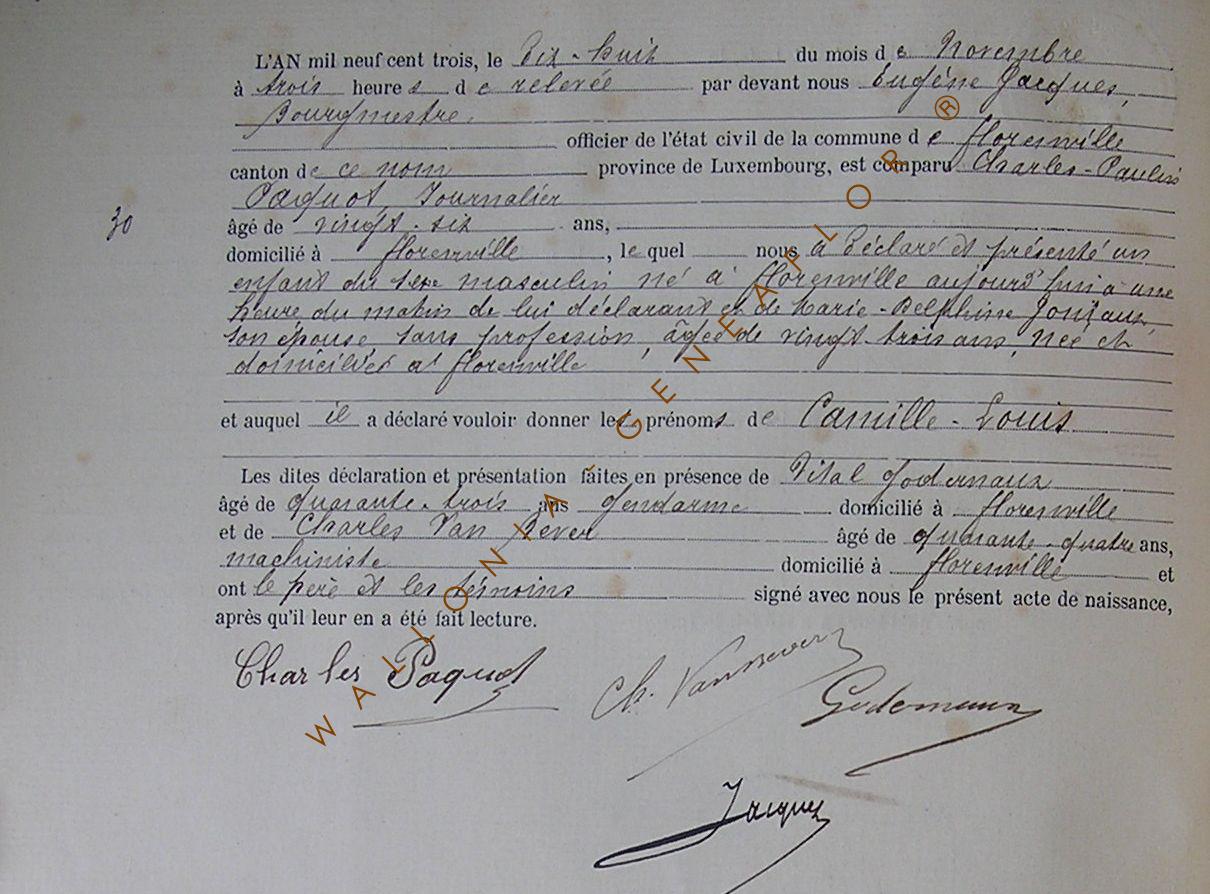 L'AN mil neuf cent trois, le Dix-huit du mois de Novembre
à trois heures de relevée par devant nous Eugène Jacques,
Bourgmestre,
officier de l'état civil de la commune de florenville
canton de ce nom province de Luxembourg, est comparu Charles-Paulin
Paquot, Journalier
30
âgé de vingt-six ans,
domicilié à florenville, le quel nous a Déclaré et présenté un
enfant du sexe masculin né à florenville aujourd'hui à une
heure du matin de lui déclarant et de Marie-Delphine
son épouse sans profession, âgée de vingt-trois ans, née et
domiciliée à florenville
et auquel il a déclaré vouloir donner les prénoms de Camille-Louis
Les dites déclaration et présentation faites en présence de Vital Godernaux
âgé de quarante-trois ans Gendarme domicilié à florenville
et de Charles Van Never âgé de quarante-quatre ans,
machiniste domicilié à florenville et
ont le père et les témoins signé avec nous le présent acte de naissance,
après qu'il leur en a été fait lecture.
Charles Paquot
Ch. Vannever
Godernaux
Jacques
WALLONIA - GENEAFLOR ®